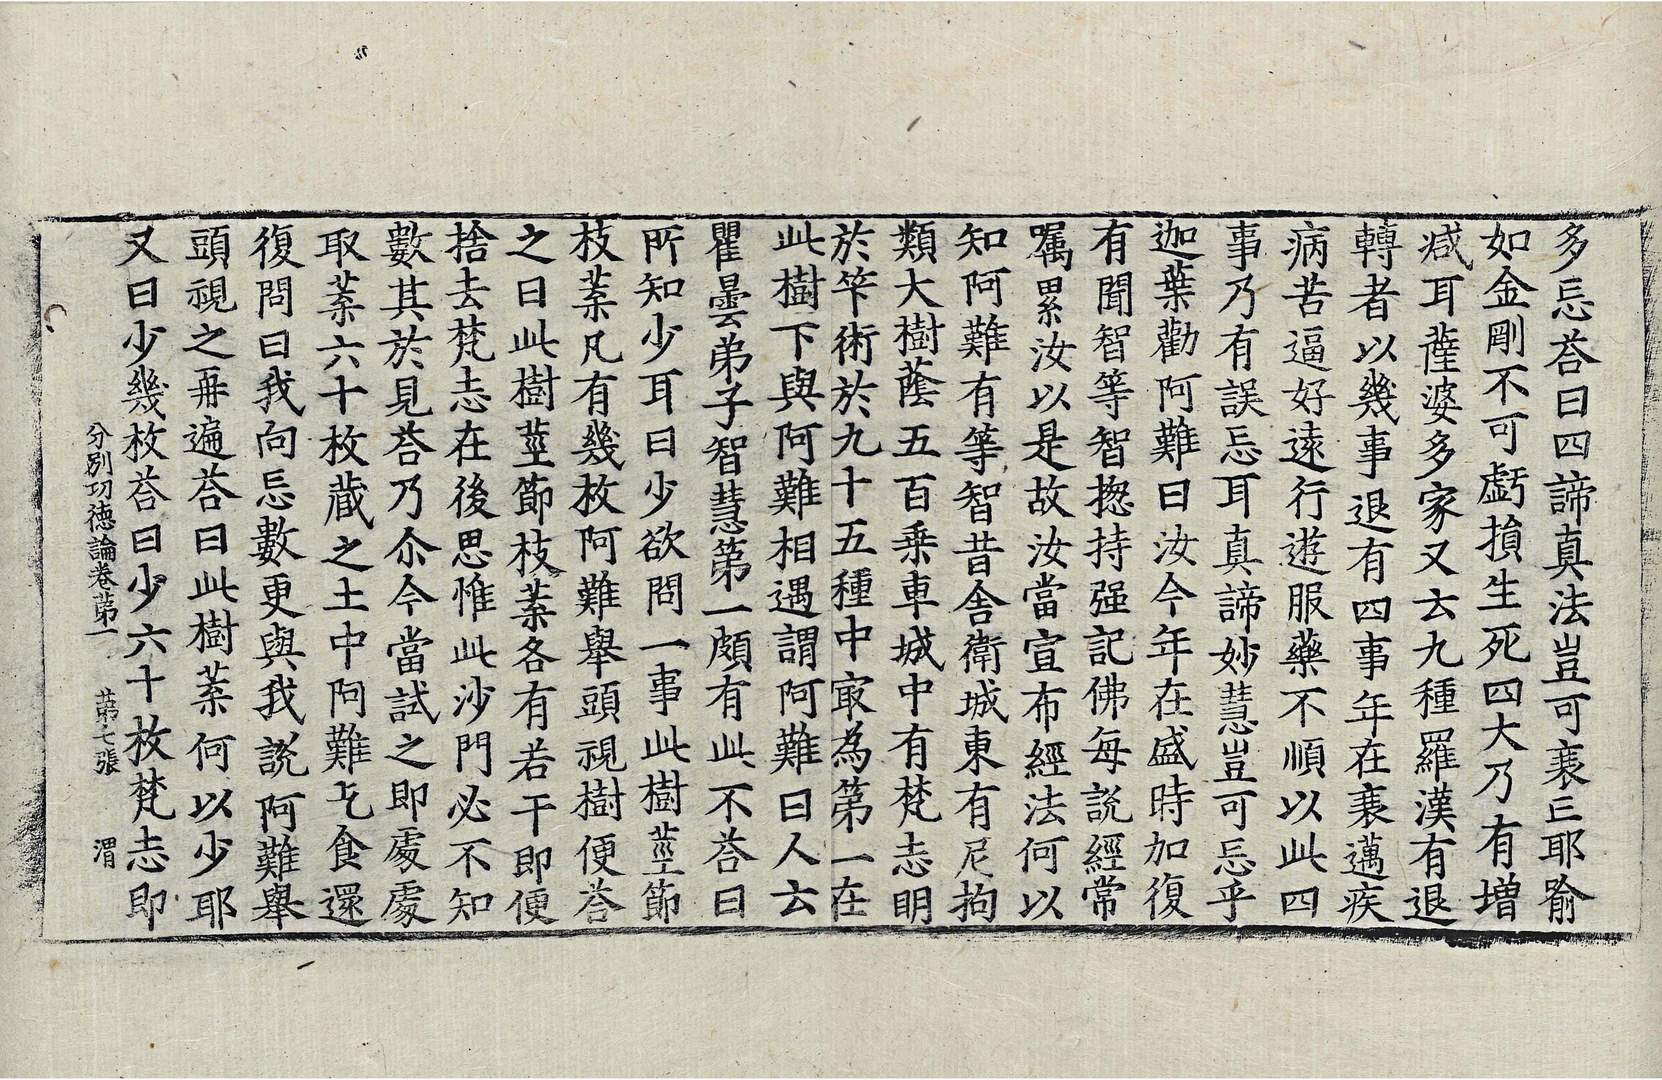 多忘荅曰四諦真法豈可衰亡耶喻
如金剛不可虧損生死四大乃有增
減耳薩婆多家又云九種羅漢有退
轉者以幾事退有四事年在衰邁疾
病苦逼好遠行遊服藥不順以此四
事乃有誤忘耳真諦妙慧豈可忘乎
迦葉勸阿難曰汝今年在盛時加復
有聞智等智揔持强記佛每說經常
囑累汝以是故汝當宣布經法何以
知阿難有等智昔舍衛城東有尼拘
類大樹蔭五百乗車城中有梵志明
於筭術於九十五種中㝡為第一在
此樹下與阿難相遇謂阿難曰人云
瞿曇弟子智慧第一頗有此不荅曰
所知少耳曰少欲問一事此樹莖節
枝葉凡有幾枚阿難舉頭視樹便荅
之曰此樹莖節枝葉各有若干即便
捨去梵志在後思惟此沙門必不知
數其於見荅乃尒今當試之即處處
取葉六十枚蔵之土中阿難乞食還
復問曰我向忘數更與我說阿難舉
頭視之再遍荅曰此樹葉何以少耶
又曰少幾枚荅曰少六十枚梵志即
分別功徳論卷苐一　苐七張　渭